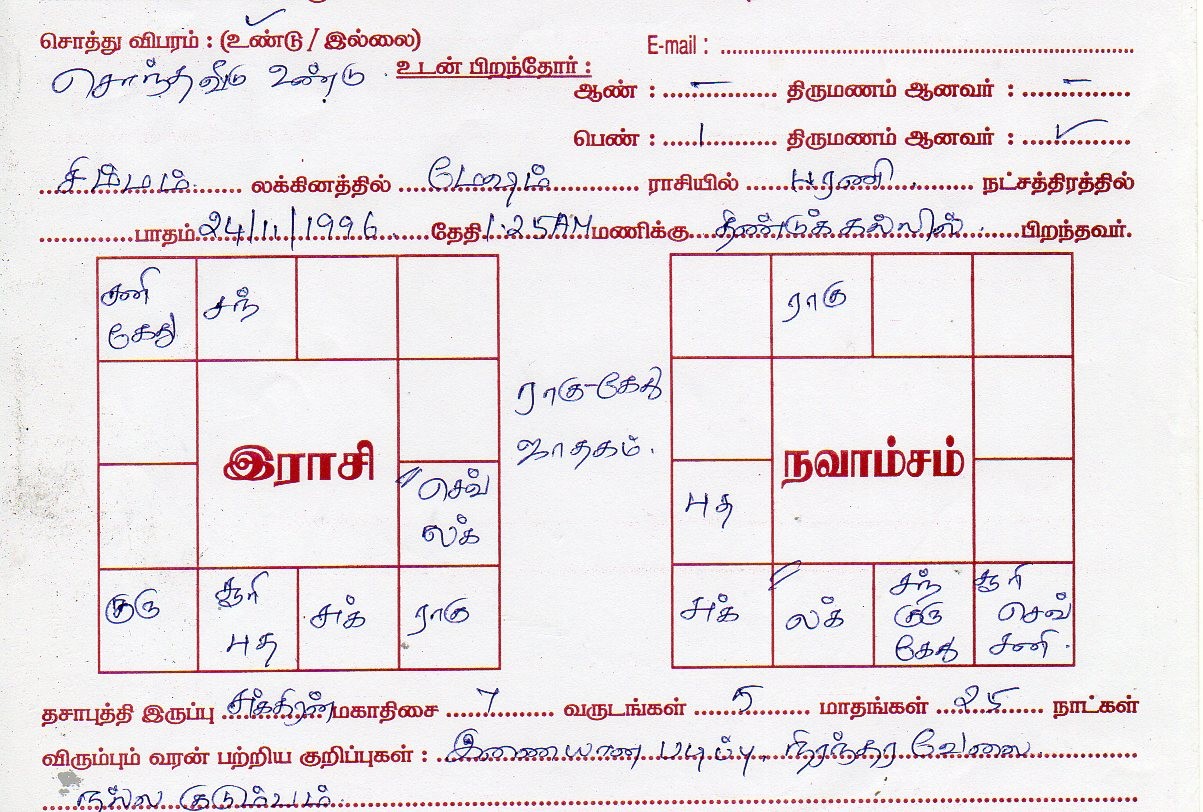 சொத்து விபரம் : (உண்டு / இல்லை) E-mail : ........................
சொந்த வீடு உண்டு. உடன் பிறந்தோர் :
ஆண் : – திருமணம் ஆனவர் : –
பெண் : 1 திருமணம் ஆனவர் : ✓
சிம்மம் லக்கினத்தில் மேஷம் ராசியில் பரணி நட்சத்திரத்தில்
............பாதம் 24/11/1996 தேதி 1.25AM மணிக்கு திண்டுக்கல்லில் பிறந்தவர்.
சனி
கேது
சந்
இராசி
செவ்
லக்
குரு
சூரி
புத
சுக்
ராகு
ராகு-கேது
ஜாதகம்.
ராகு
நவாம்சம்
புத
சுக்
லக்
சந்
குரு
கேது
சூரி
செவ்
சனி.
தசாபுத்தி இருப்பு சுக்கிரன் மகாதிசை 7 வருடங்கள் 5 மாதங்கள் 25 நாட்கள்
விரும்பும் வரன் பற்றிய குறிப்புகள் : இணையான படிப்பு, நிரந்தர வேலை
நல்ல குடும்பம்.